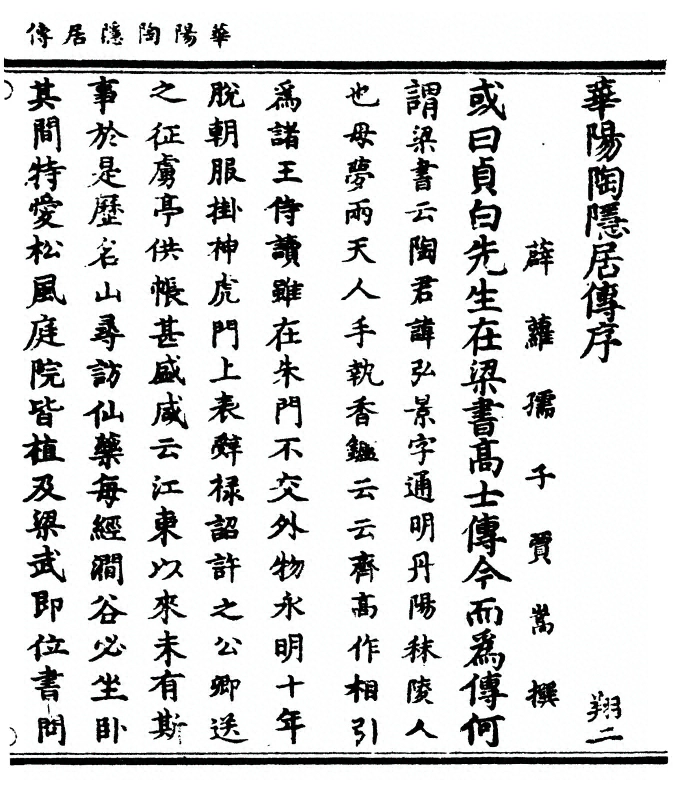 華陽陶隱居傳
華陽陶隱居傳序
翔二
薜蘿孺子賈嵩撰
或曰貞白先生在梁書高士傳今而爲傳何
謂梁書云陶君諱弘景字通明丹陽秣陵人
也母夢兩天人手執香鑪云云齊高作相引
爲諸王侍讀雖在朱門不交外物永明十年
脫朝服掛神虎門上表辭祿詔許之公卿送
之征虜亭供帳甚盛咸云江東以來未有斯
事於是歷名山尋訪仙藥每經澗谷必坐臥
其間特愛松風庭院皆植及梁武即位書問